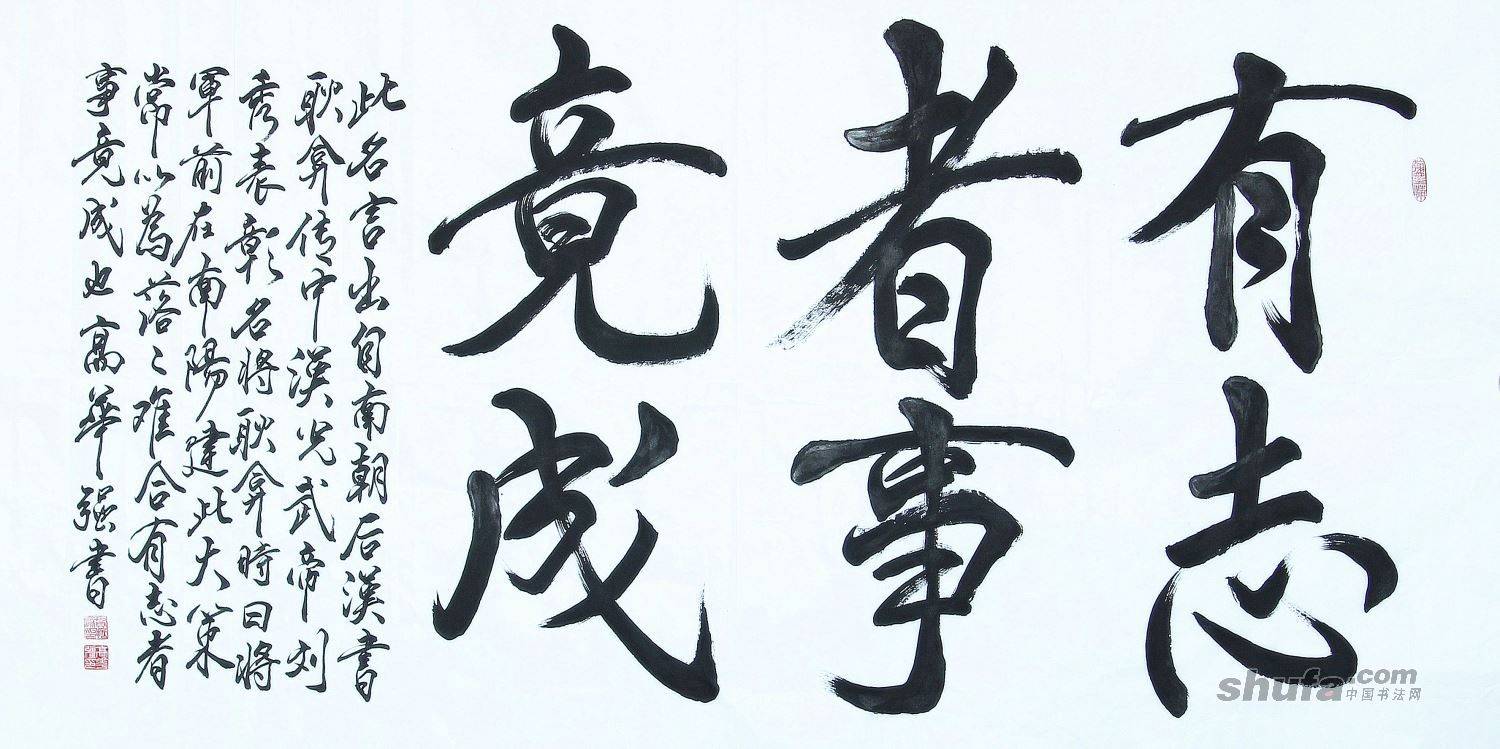 有志
者事
竟成
此名言出自南朝后漢書
耿弇传中漢光武帝刘
秀表彰名将耿弇時曰将
軍前在南陽建此大策
常以為落〻难合有志者
事竟成也高華强書
shufa.com
中国书法网